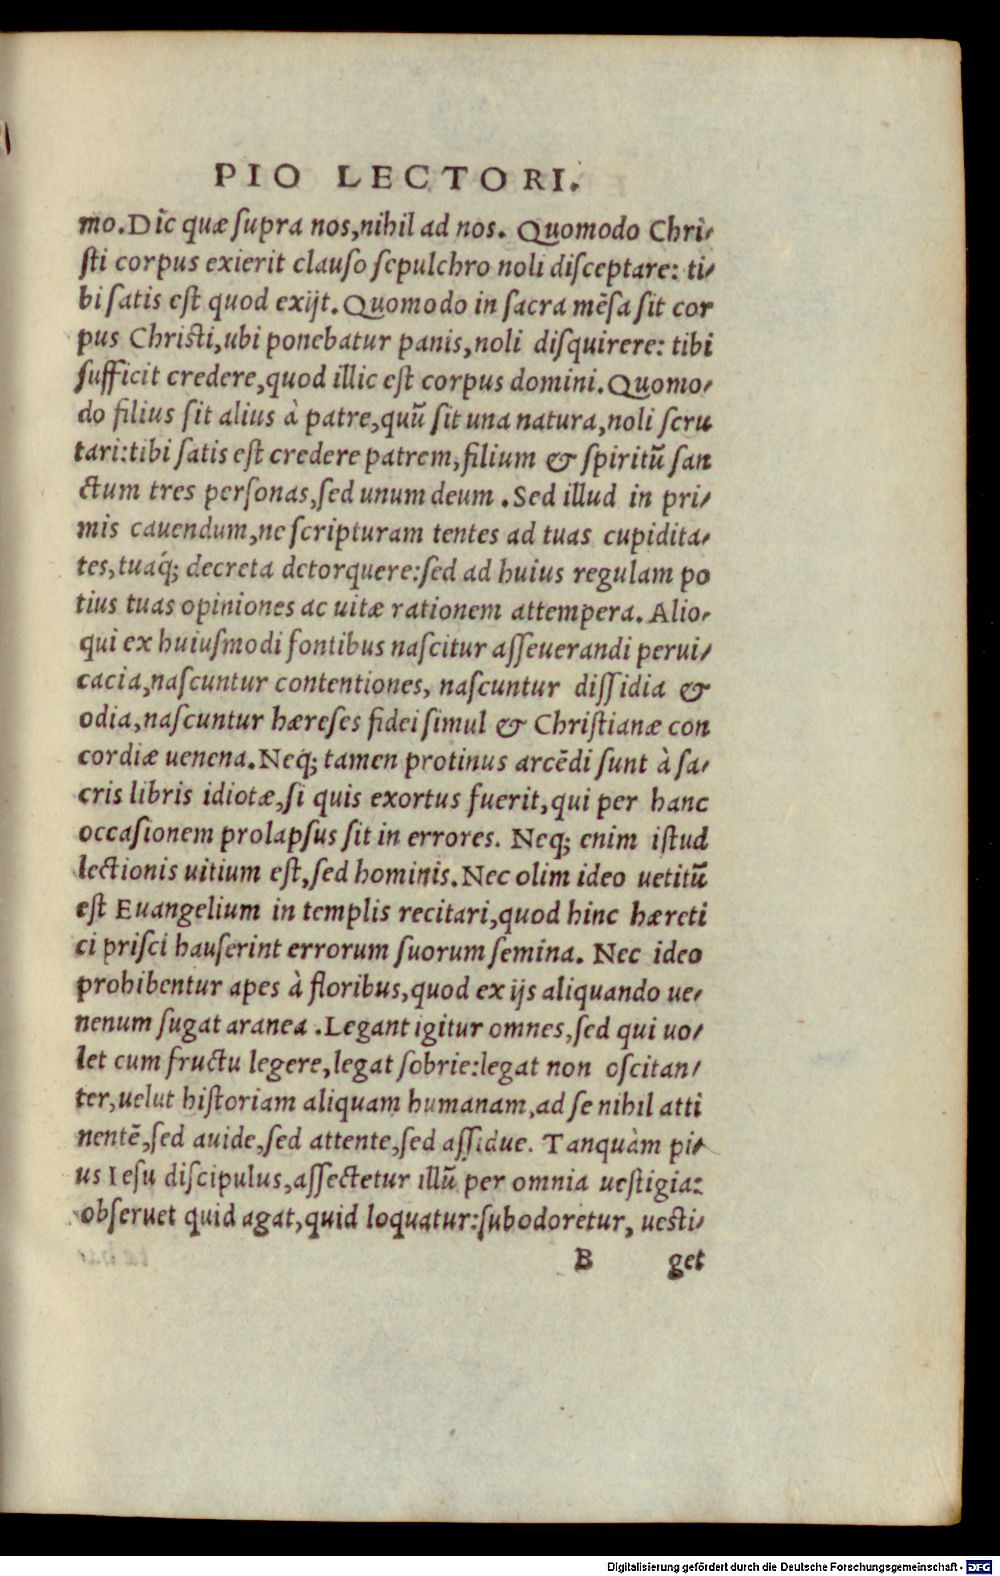 PIO LECTORI.
mo. Dic̄ quæ supra nos, nihil ad nos. Quomodo Chri-
sti corpus exierit clauso sepulchro noli disceptare: ti-
bi satis est quod exijt. Quomodo in sacra mēsa sit cor
pus Christi, ubi ponebatur panis, noli disquirere: tibi
sufficit credere, quod illic est corpus domini. Quomo-
do filius sit alius à patre, quū sit una natura, noli scru
tari: tibi satis est credere patrem, filium & spiritū san
ctum tres personas, sed unum deum. Sed illud in pri-
mis cauendum, ne scripturam tentes ad tuas cupidita-
tes, tuaq́; decreta detorquere: sed ad huius regulam po
tius tuas opiniones ac uitæ rationem attempera. Alio-
qui ex huiusmodi fontibus nascitur asseuerandi perui-
cacia, nascuntur contentiones, nascuntur dissidia &
odia, nascuntur hæreses fidei simul & Christianæ con
cordiæ uenena. Neq; tamen protinus arcēdi sunt à sa-
cris libris idiotæ, si quis exortus fuerit, qui per hanc
occasionem prolapsus sit in errores. Neq; enim istud
lectionis uitium est, sed hominis. Nec olim ideo uetitū
est Euangelium in templis recitari, quod hinc hæreti
ci prisci hauserint errorum suorum semina. Nec ideo
prohibentur apes à floribus, quod ex ijs aliquando ue-
nenum sugat aranea. Legant igitur omnes, sed qui uo-
let cum fructu legere, legat sobrie: legat non oscitan-
ter, uelut historiam aliquam humanam, ad se nihil atti
nentē, sed auide, sed attente, sed assidue. Tanquàm pi-
us Iesu discipulus, assectetur illū per omnia uestigia:
obseruet quid agat, quid loquatur: subodoretur, uesti-
B get
Digitalisierung gefördert durch die Deutsche Forschungsgemeinschaft - DFG